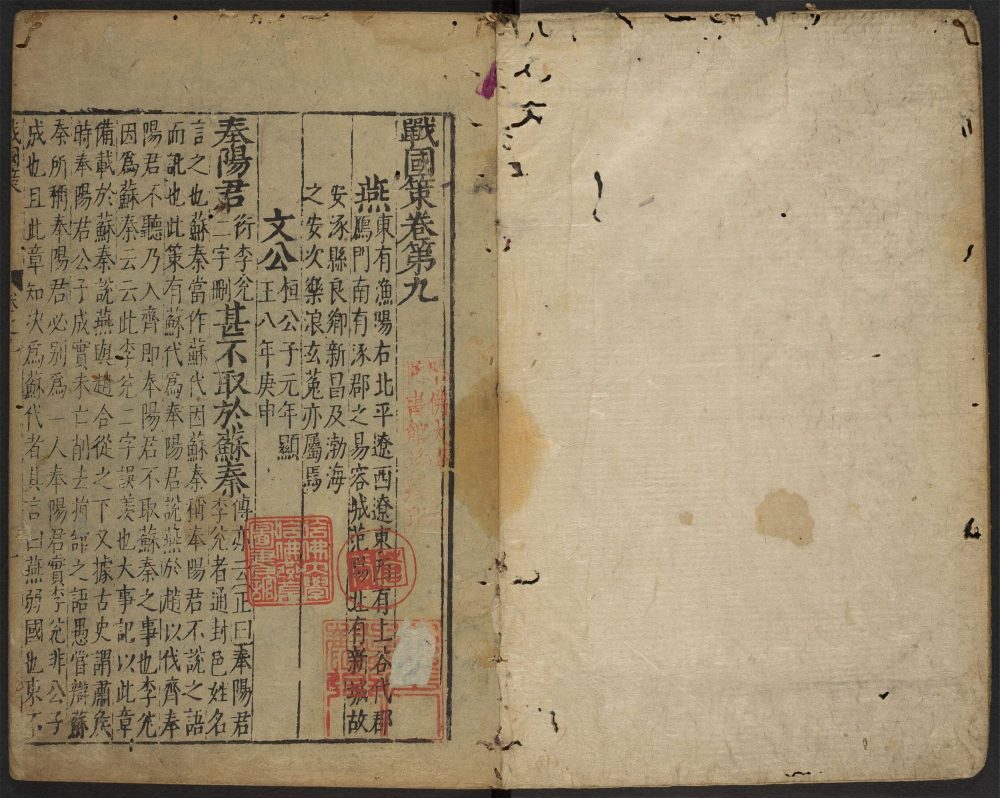 戰國策卷第九
燕東有漁陽右北平遼西遼東西有上谷代郡
鴈門南有涿郡之易容城范陽北有新城故
安涿縣良鄉新昌及渤海
之安次樂浪玄菟亦屬焉
文公桓公子元年顯
王八年庚申
奉陽君衍李兊二字刪甚不取於蘇秦傳亦云正曰奉陽君
李兊者通封邑姓名
言之也蘇秦當作蘇代因蘇秦稱奉陽君不說之語
而訛也此策有蘇代爲奉陽君說燕於趙以伐齊奉
陽君不聽乃入齊即奉陽君不取蘇秦之事也李兊
因爲蘇秦云云此李兊二字誤羨也大事記以此章
備載於蘇秦說燕與趙合從之下又據古史謂肅侯
時奉陽君公子成實未亡削去捐館之語愚嘗辯蘇
秦所稱奉陽君必別爲一人奉陽君實李兊非公子
成也且此章知決爲蘇代者其言曰燕弱國也東不
哈佛大學
哈佛燕京
圖書館